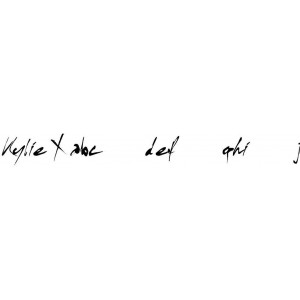 Kylie X abc def ghi j